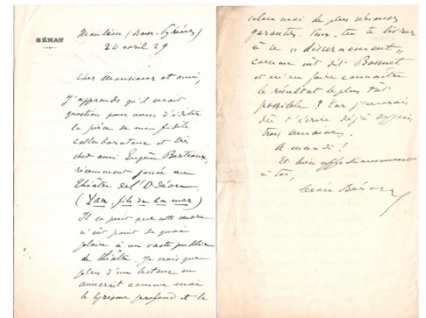 SÉNAT
24 avril 29
Cher Monsieur et ami,
J'apprends qu'il serait
question pour vous d'éditer
la pièce de mon fidèle
collaborateur et très
cher ami Eugène
récemment jouée au
Théâtre de l'Odéon
(Yan, fils de la mer)
Il se peut que cette œuvre
n'ait point de quoi
plaire à un vaste public
de théâtre. Je crois que
plus d'un lecteur en
aimerait comme moi
le lyrisme profond et le
selon moi de plus sérieuses
garanties. Veux-tu te livrer
à ce "discernement"
comme eût dit Bossuet
et m'en faire connaître
le résultat le plus tôt
possible ? Car j'aurais
dû t'écrire déjà depuis
trois semaines.
A mardi !
Et bien affectueusement
à toi,
Léon Bérard